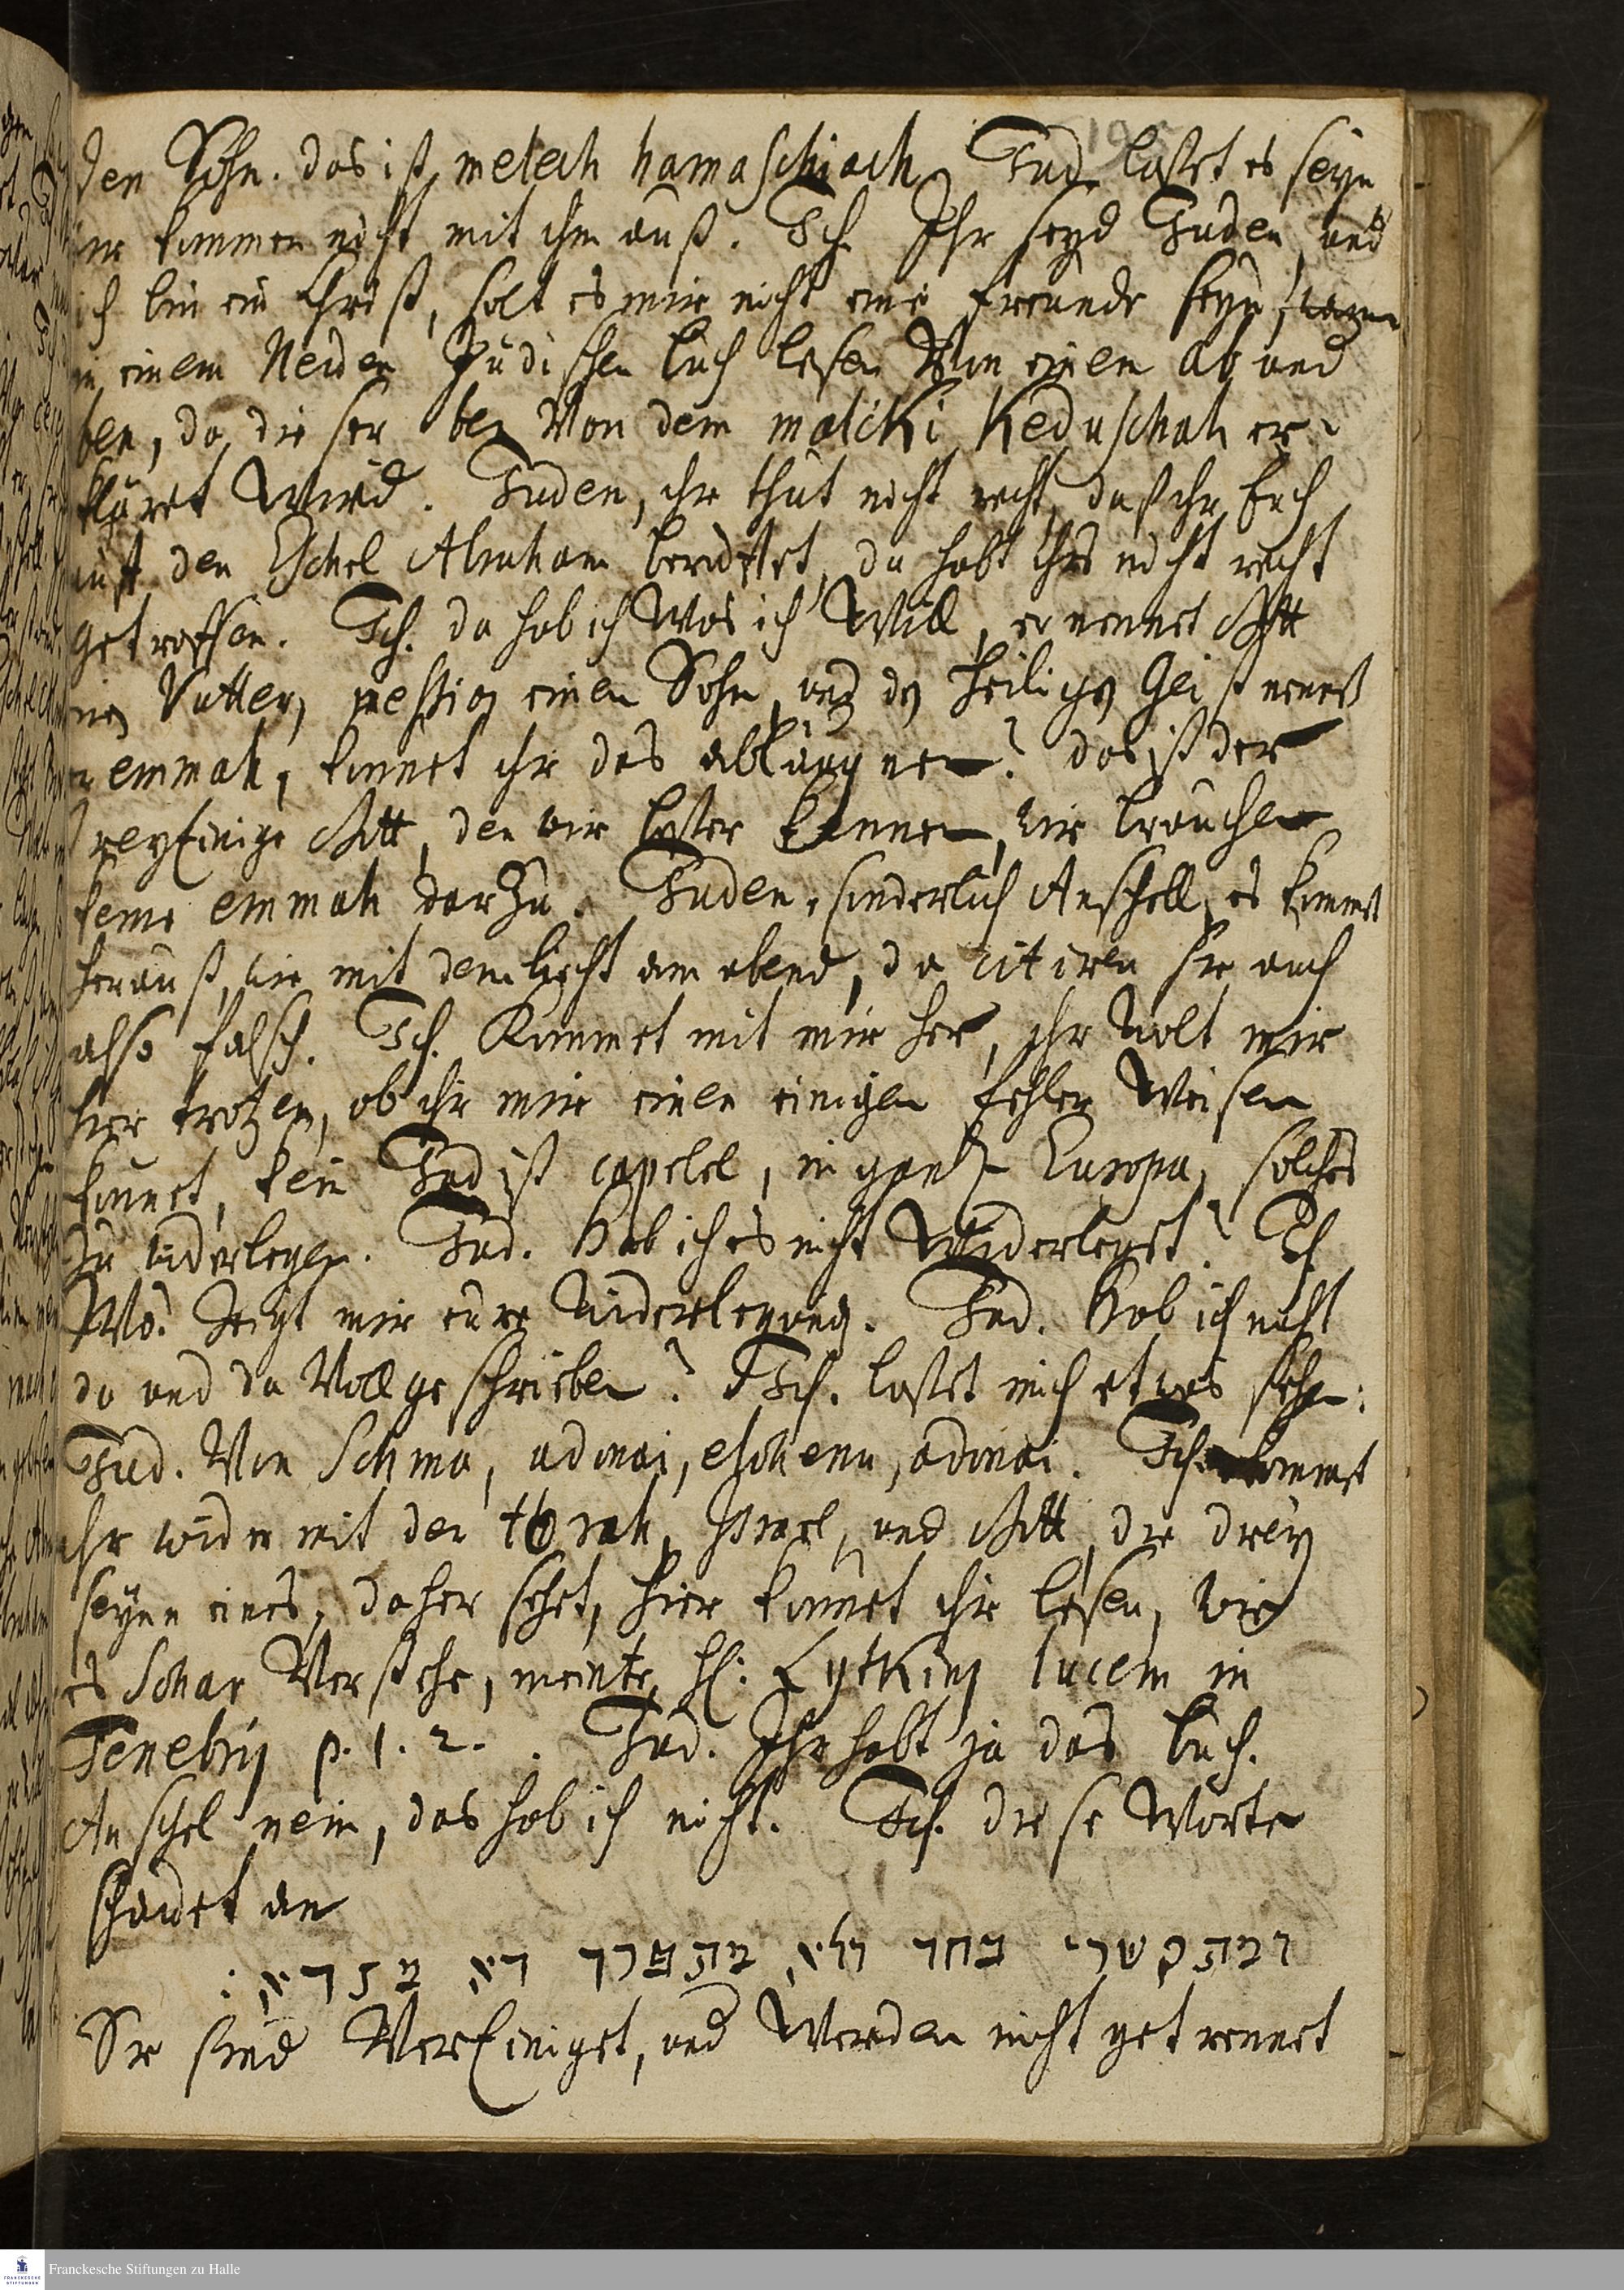 195
den Sohn. das ist melech hamaschiach. Jud. laßet es seyn
wir kommen nicht mit ihm auß. Ich. Ihr seyd Juden, und
ich bin ein Christ, solt es mir nicht eine freunde seyn, wann
in einem Neiden Jüdischen buch lesen Von einem ab und
ben, da dieser ben Von dem malchi Keduschah er-
kläret Wird. Juden, ihr thut nicht recht, daß ihr Euch
auff den Eschel Abraham berufftet, da habt ihrs nicht recht
getroffen. Ich. da hab ich Was ich Will, er nennet Gott
einen Vatter, messiaz einen Sohn, und dz heilige Geist nennet
er emmah, könnet ihr das abläugnen? das ist der
dreyEinige Gott, den wir Christen kennen, wir brauchen
keine emmah darzu. Juden, sonderlich Anschell, es kommet
herauß, wie mit dem liecht am abend, da citiren sie auch
also falsch. Ich. Kommet mit mir her, ihr wolt mir
hier trotzen, ob ihr mir einen einigen fehler Weisen
könnet, kein Jud ist capabel, in gantz Europa, solches
zu widerlegen. Jud. Hab ich es nicht Widerleget? Ich
Wo? Zeigt mir eure Widerlegung. Jud. Hab ich nicht
da und da Voll geschrieben? Ich. laßet mich etwas sehen:
Jud. Von Schma, adonai, elohenu, adonai. Ich. kommet
ihr wider mit der thorah, Israel, und Gott, die drey
seynn eines, daher sehet, hier könnet ihr lesen, wie
es Sohar Verstehe, meinte, hl: Lytkinj lucem in
Tenebrij p. 1. 2. Jud. Ihr habt ja das buch.
Anschel nein, das hab ich nicht. Ich. diese Worte
schauet an
ומתקשרי בחד ולא מתפרד דא מדא :
Sie sind VerEiniget, und Werden nicht getrennet
Franckesche Stiftungen zu Halle